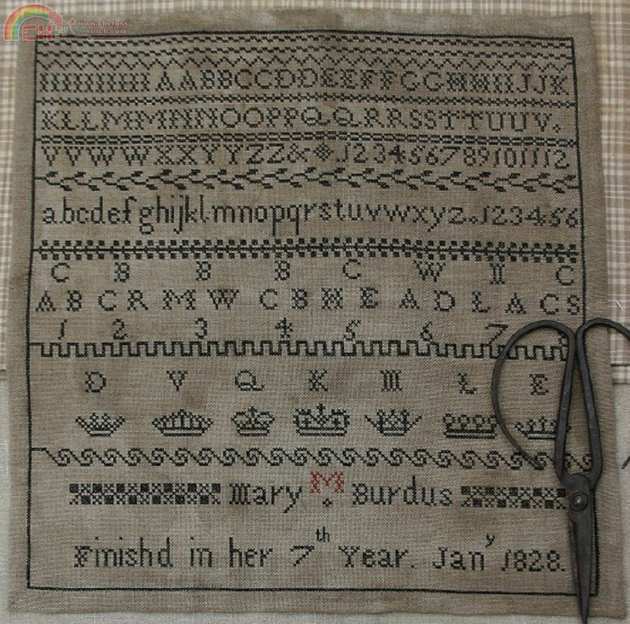 AABBCCDDEEFFGGHHIIJJK
KLLMMNNOOPPQQRRSSTTUUV.
VVWWXXYYZZ& 123456789101112
abcdefghijklmnopqrstuvwxyz.123456
C B B B C W H C
A B C R M W C B H E A D L A C S
1 2 3 4 5 6 7 8
D V Q K M L E
Mary M Burdus
Finishd in her 7th Year. Jany 1828.